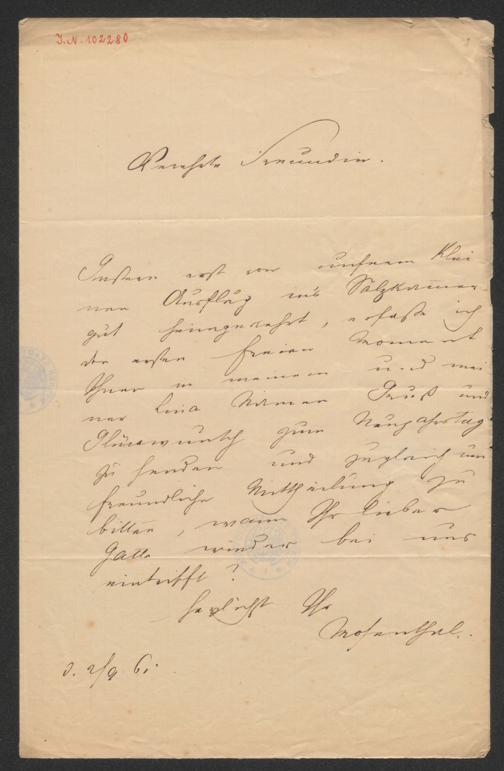 J.N. 102280
Verehrte Freundin.
Gestern erst von unserem klei
nen Ausflug ins Salzkammer
gut heimgekehrt, erfasse ich
den ersten freien Moment
Ihnen in meinem und mei
ner Lina Namen Gruß und
Glückwunsch zum Neujahrstag
zu senden und zugleich um
freundliche Mittheilung zu
bitten, wann Ihr lieber
Gatte wieder bei uns
eintrifft?
herzlichst Ihr
Mosenthal.